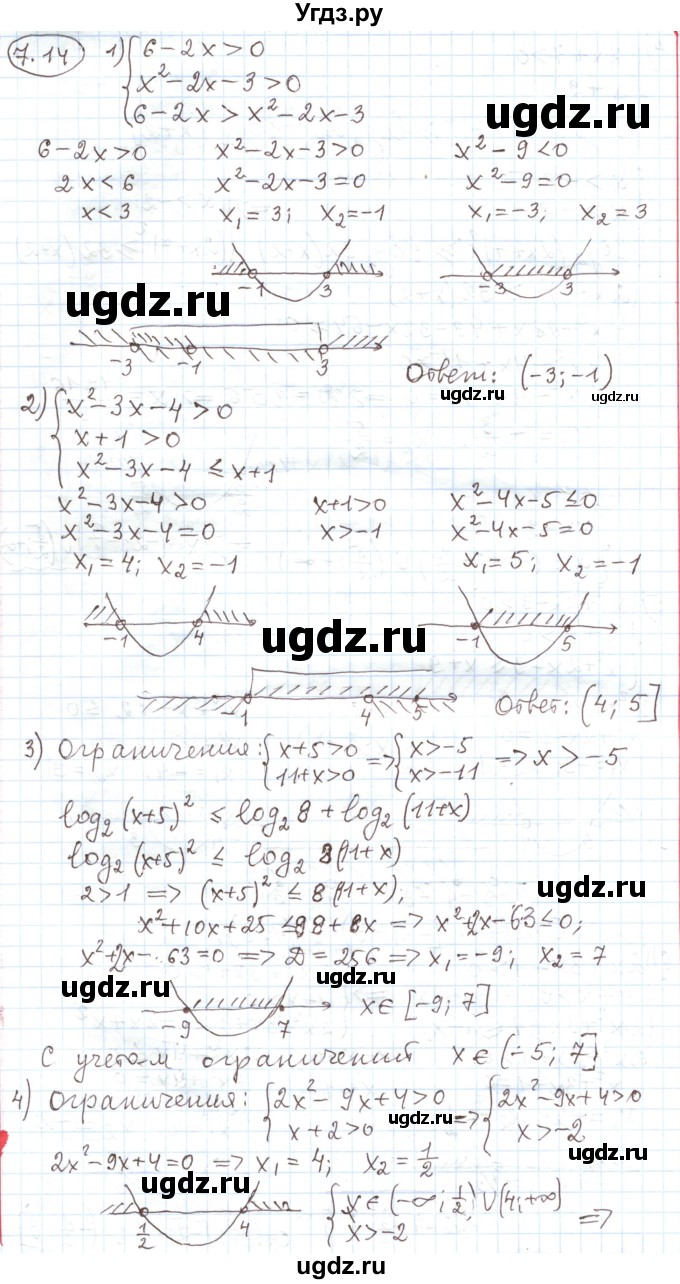 Угдз.ру
7.14 1) { 6 - 2x > 0
x² - 2x - 3 > 0
6 - 2x > x² - 2x - 3
ugdz.ru
6 - 2x > 0 x² - 2x - 3 > 0 x² - 9 < 0
2x < 6 x² - 2x - 3 = 0 x² - 9 = 0
x < 3 x₁ = 3; x₂ = -1 x₁ = -3; x₂ = 3
-1 3 -3 3
ugdz.ru
-3 -1 3
Ответ: (-3; -1)
ugdz.ru
2) { x² - 3x - 4 > 0
x + 1 > 0
x² - 3x - 4 ≤ x + 1
x² - 3x - 4 > 0 x + 1 > 0 x² - 4x - 5 ≤ 0
x² - 3x - 4 = 0 x > -1 x² - 4x - 5 = 0
ugdz.ru
x₁ = 4; x₂ = -1 x₁ = 5; x₂ = -1
-1 4 -1 5
ugdz.ru
-1 4 5
Ответ: (4; 5]
ugdz.ru
3) Ограничения: { x + 5 > 0 => { x > -5 => x > -5
11 + x > 0 x > -11
log₂ (x+5)² ≤ log₂ 8 + log₂ (11+x)
log₂ (x+5)² ≤ log₂ 8(11+x)
2 > 1 => (x+5)² ≤ 8(11+x);
ugdz.ru
x² + 10x + 25 ≤ 88 + 8x => x² + 2x - 63 ≤ 0;
x² + 2x - 63 = 0 => D = 256 => x₁ = -9; x₂ = 7
ugdz.ru ugdz.ru
-9 7 x ∈ [-9; 7]
С учетом ограничений x ∈ (-5; 7]
ugdz.ru
4) Ограничения: { 2x² - 9x + 4 > 0 => { 2x² - 9x + 4 > 0
x + 2 > 0 x > -2
ugdz.ru
2x² - 9x + 4 = 0 => x₁ = 4; x₂ = 1/2
ugdz.ru
1/2 4 { x ∈ (-∞; 1/2) ∪ (4; +∞)
x > -2 =>
ugdz.ru